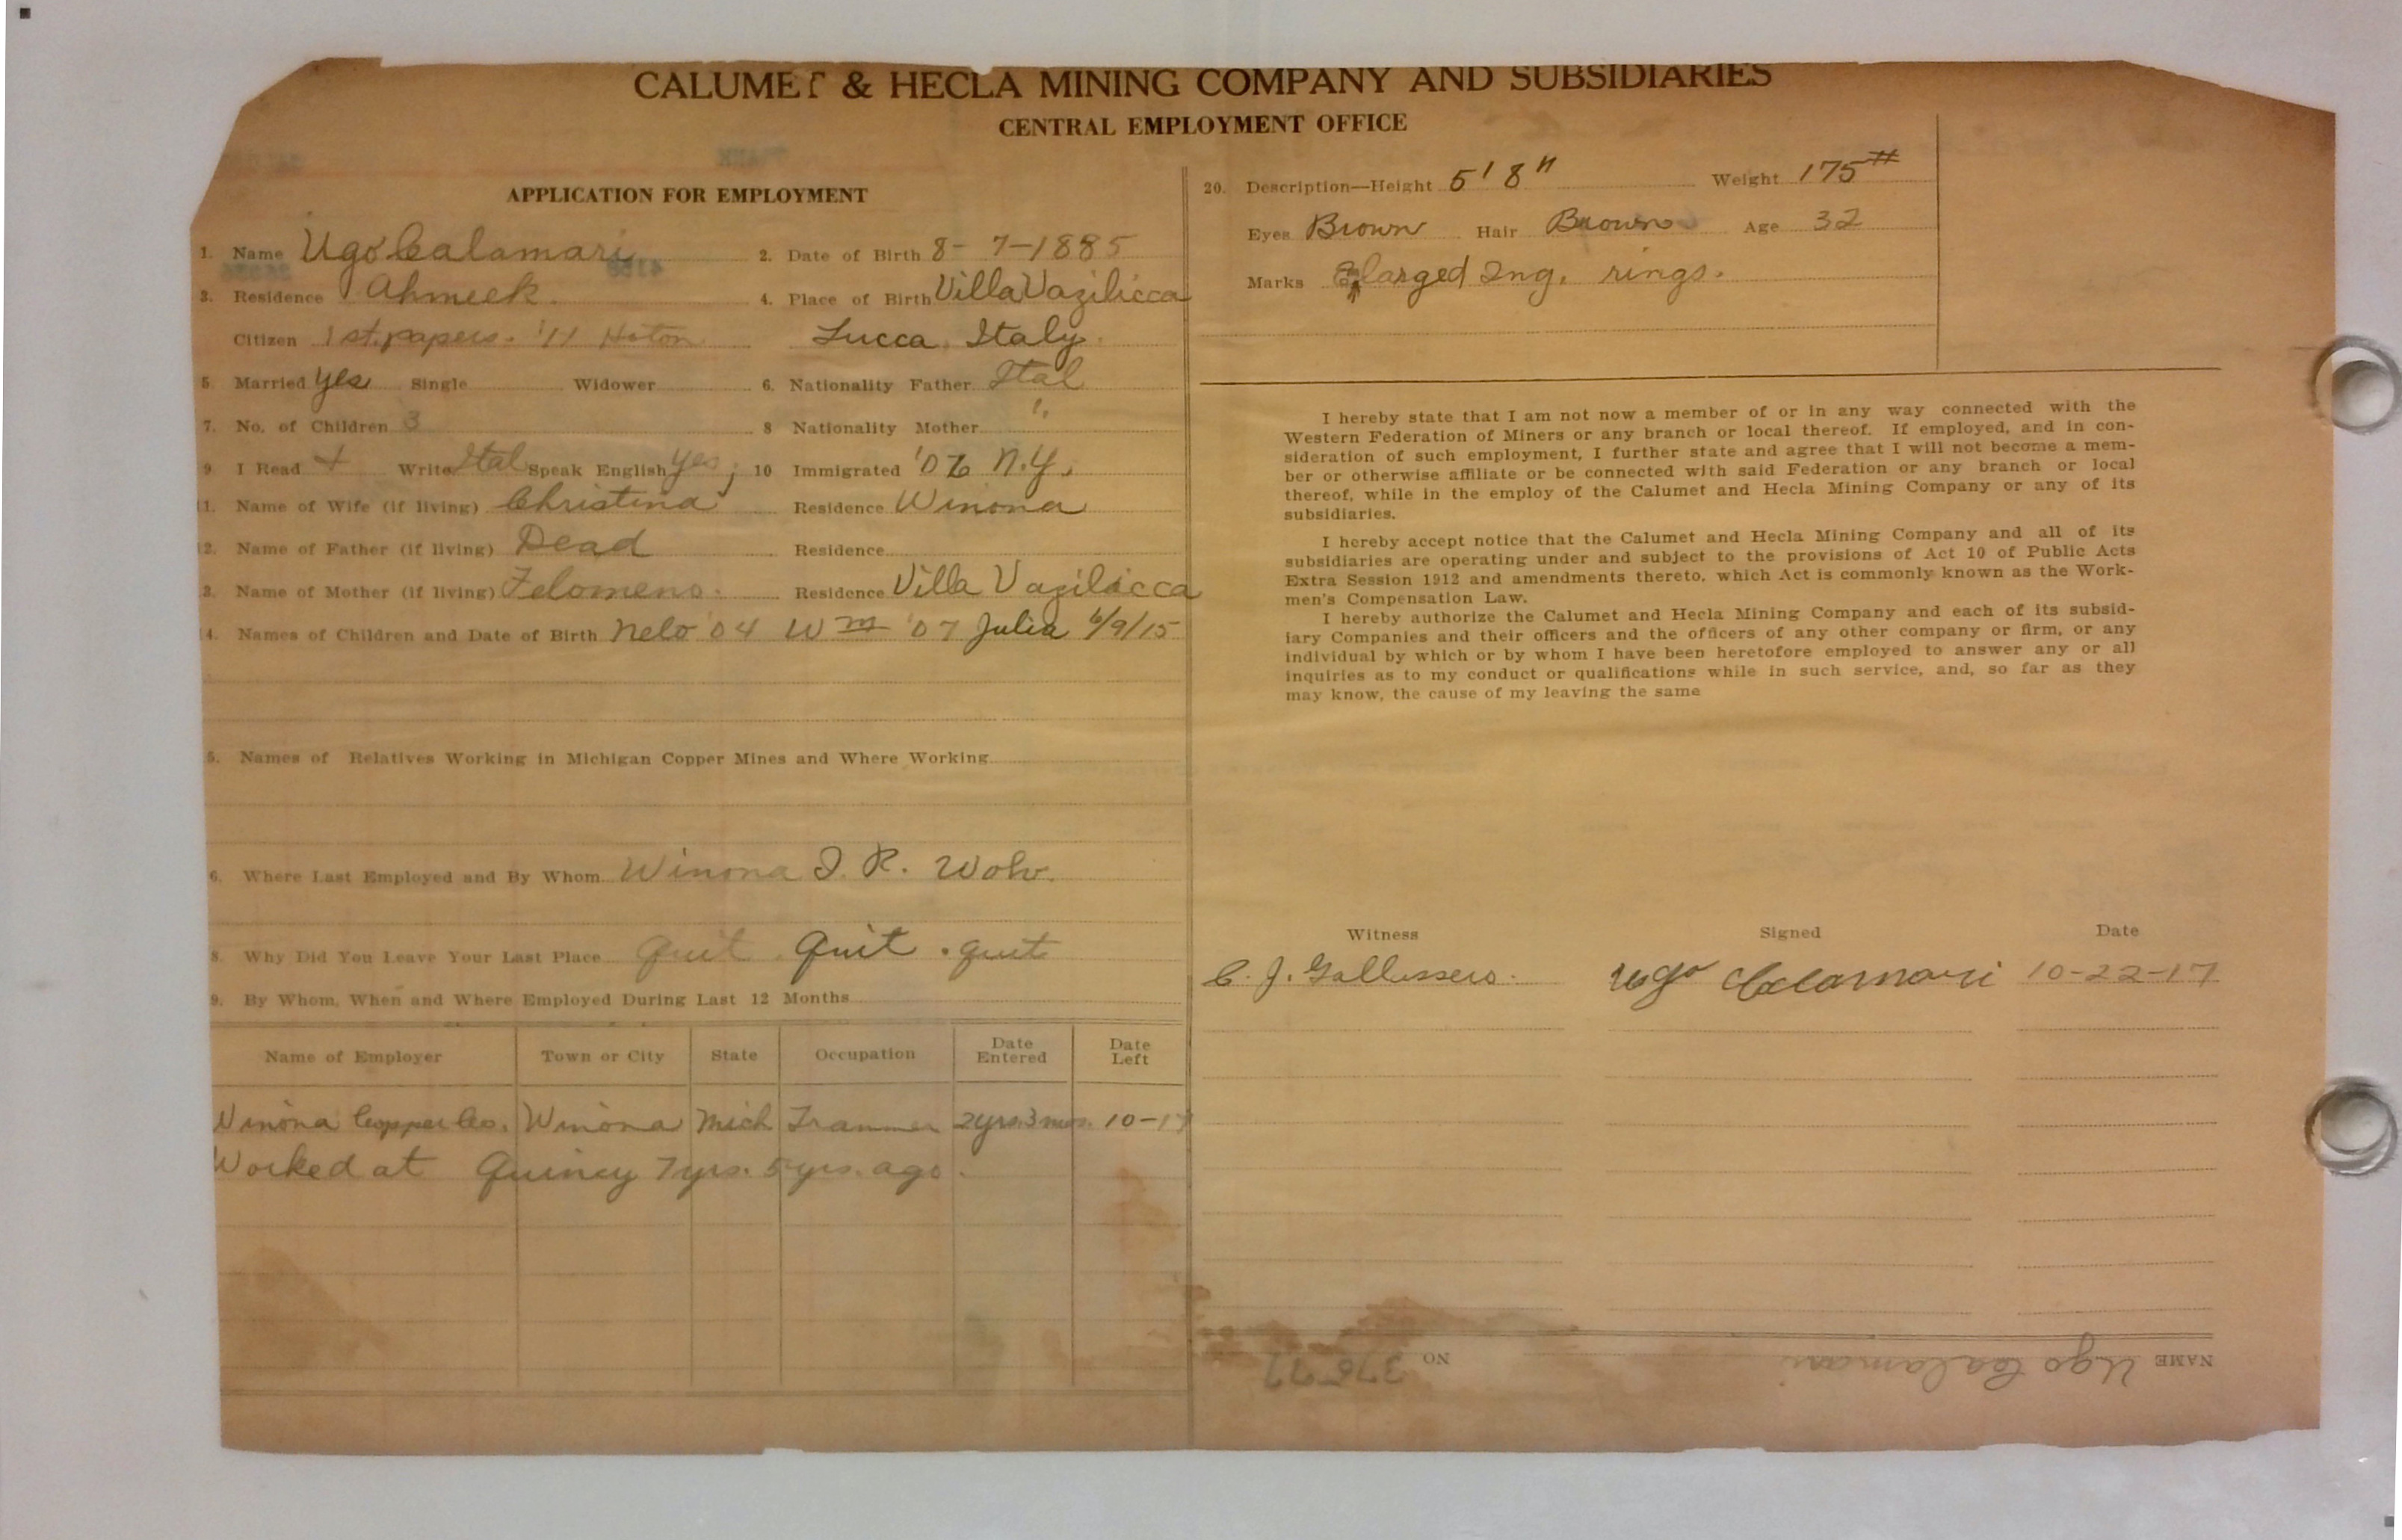 CALUMET & HECLA MINING COMPANY AND SUBSIDIARIES
CENTRAL EMPLOYMENT OFFICE
APPLICATION FOR EMPLOYMENT
1. Name Ugo Calamari 2. Date of Birth 8-7-1885
3. Residence Ahmeek. 4. Place of Birth Villa Vazilicca
Citizen 1st. papers. '11 Hoton Lucca, Italy.
5. Married Yes Single Widower 6. Nationality Father Ital
7. No. of Children 3 8 Nationality Mother "
9. I Read + Write Ital Speak English Yes; 10 Immigrated '06 N.Y.
11. Name of Wife (if living) Christina Residence Winona
12. Name of Father (if living) Dead Residence
3. Name of Mother (if living) Felomena. Residence Villa Vazilicca
14. Names of Children and Date of Birth Nelo '04 Wm '07 Julia 6/9/15
5. Names of Relatives Working in Michigan Copper Mines and Where Working
6. Where Last Employed and By Whom Winona I. R. Wolv.
8. Why Did You Leave Your Last Place Quit. Quit. quit
9. By Whom, When and Where Employed During Last 12 Months
Name of Employer Town or City State Occupation Date Entered Date Left
Winona Copper Co. Winona Mich Trammer 2yrs. 3 mos. 10-17
Worked at Quincy 7 yrs. 5 yrs. ago.
20. Description—Height 5' 8" Weight 175#
Eyes Brown Hair Brown Age 32
Marks Enlarged Ing. rings.
I hereby state that I am not now a member of or in any way connected with the
Western Federation of Miners or any branch or local thereof. If employed, and in con-
sideration of such employment, I further state and agree that I will not become a mem-
ber or otherwise affiliate or be connected with said Federation or any branch or local
thereof, while in the employ of the Calumet and Hecla Mining Company or any of its
subsidiaries.
I hereby accept notice that the Calumet and Hecla Mining Company and all of its
subsidiaries are operating under and subject to the provisions of Act 10 of Public Acts
Extra Session 1912 and amendments thereto, which Act is commonly known as the Work-
men's Compensation Law.
I hereby authorize the Calumet and Hecla Mining Company and each of its subsid-
iary Companies and their officers and the officers of any other company or firm, or any
individual by which or by whom I have been heretofore employed to answer any or all
inquiries as to my conduct or qualifications while in such service, and, so far as they
may know, the cause of my leaving the same
Witness Signed Date
C. J. Ugo Calamari 10-22-17
NAME Ugo Calamari NO 37577